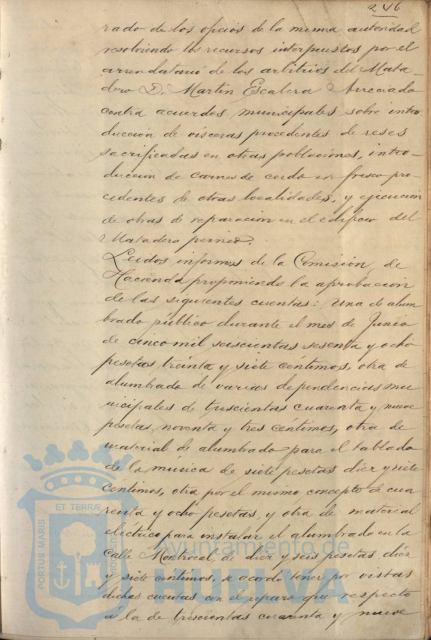 246
rado de los oficios de la misma autoridad
resolviendo los recursos interpuestos por el
arrendatario de los arbitrios del Mata-
dero D. Martin Escalera
contra acuerdos municipales sobre intro-
duccion de visceras procedentes de reses
sacrificadas en otras poblaciones, intro-
duccion de carnes de cerdo en fresco pro-
cedentes de otras localidades, y ejecucion
de obras de reparacion en el edificio del
Matadero
Leidos informes de la Comision de
Hacienda proponiendo la aprobacion
de las siguientes cuentas: una de alum-
brado público durante el mes de Junio
de cinco mil seiscientas sesenta y ocho
pesetas treinta y siete céntimos, otra de
alumbrado de varias dependencias mu-
nicipales de trescientas cuarenta y nueve
pesetas, noventa y tres centimos, otra de
material de alumbrado para el tablado
de la musica de siete pesetas diez y siete
centimos, otra por el mismo concepto de cua-
renta y ocho pesetas, y otra de material
eléctrico para instalar el alumbrado en la
calle de diez y seis pesetas diez
y siete centimos, se acordó tener por vistas
dichas cuentas con el reparo que respecto
á la de trescientas cuarenta y nueve
PORTUS MARIS ET TERRAE
Ayuntamiento de
HUELVA